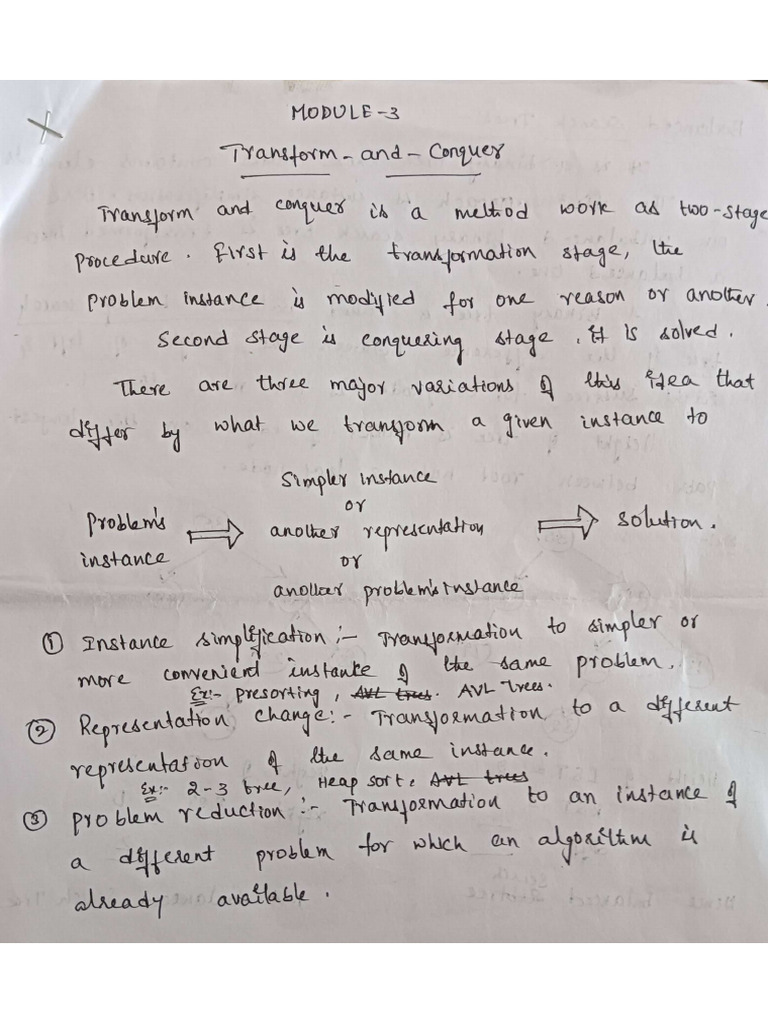 MODULE-3
Transform-and-Conquer
Transform and conquer is a method work as two-stage
procedure. First is the transformation stage, the
problem instance is modified for one reason or another.
Second stage is conquering stage, it is solved.
There are three major variations of this idea that
differ by what we transform a given instance to
Simpler instance
or
Problem's instance ⇒ another representation ⇒ solution.
or
another problem's instance
① Instance simplification:- Transformation to simpler or
more convenient instance of the same problem.
Ex:- presorting, AVL trees. AVL Trees.
② Representation change:- Transformation to a different
representation of the same instance.
Ex:- 2-3 tree, Heap sort. AVL trees
③ problem reduction:- Transformation to an instance of
a different problem for which an algorithm is
already available.